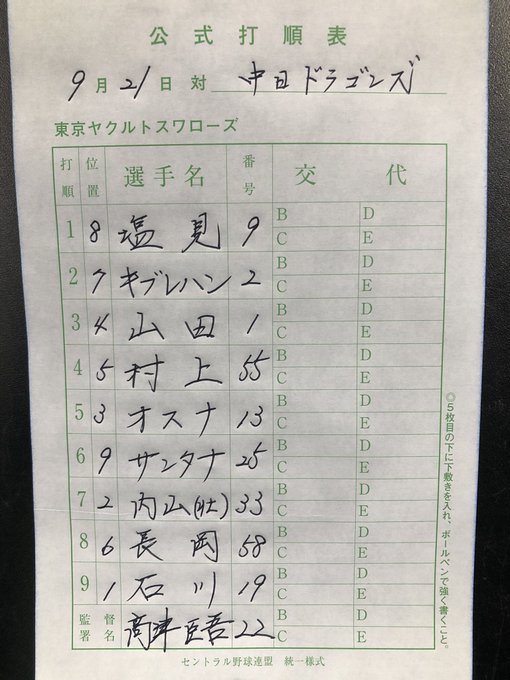 公式打順表
9月21日 対 中日ドラゴンズ
東京ヤクルトスワローズ
打順 位置 選手名 番号 交代
1 8 塩見 9 B D C E
2 7 キブレハン 2 B D C E
3 4 山田 1 B D C E
4 5 村上 55 B D C E
5 3 オスナ 13 B D C E
6 9 サンタナ 25 B D C E
7 2 内山(壮) 33 B D C E
8 6 長岡 58 B D C E
9 1 石川 19 B D C E
監督署名 高津臣吾 22 B D C E
◎5枚目の下に下敷きを入れ、ボールペンで強く書くこと。
セントラル野球連盟 統一様式